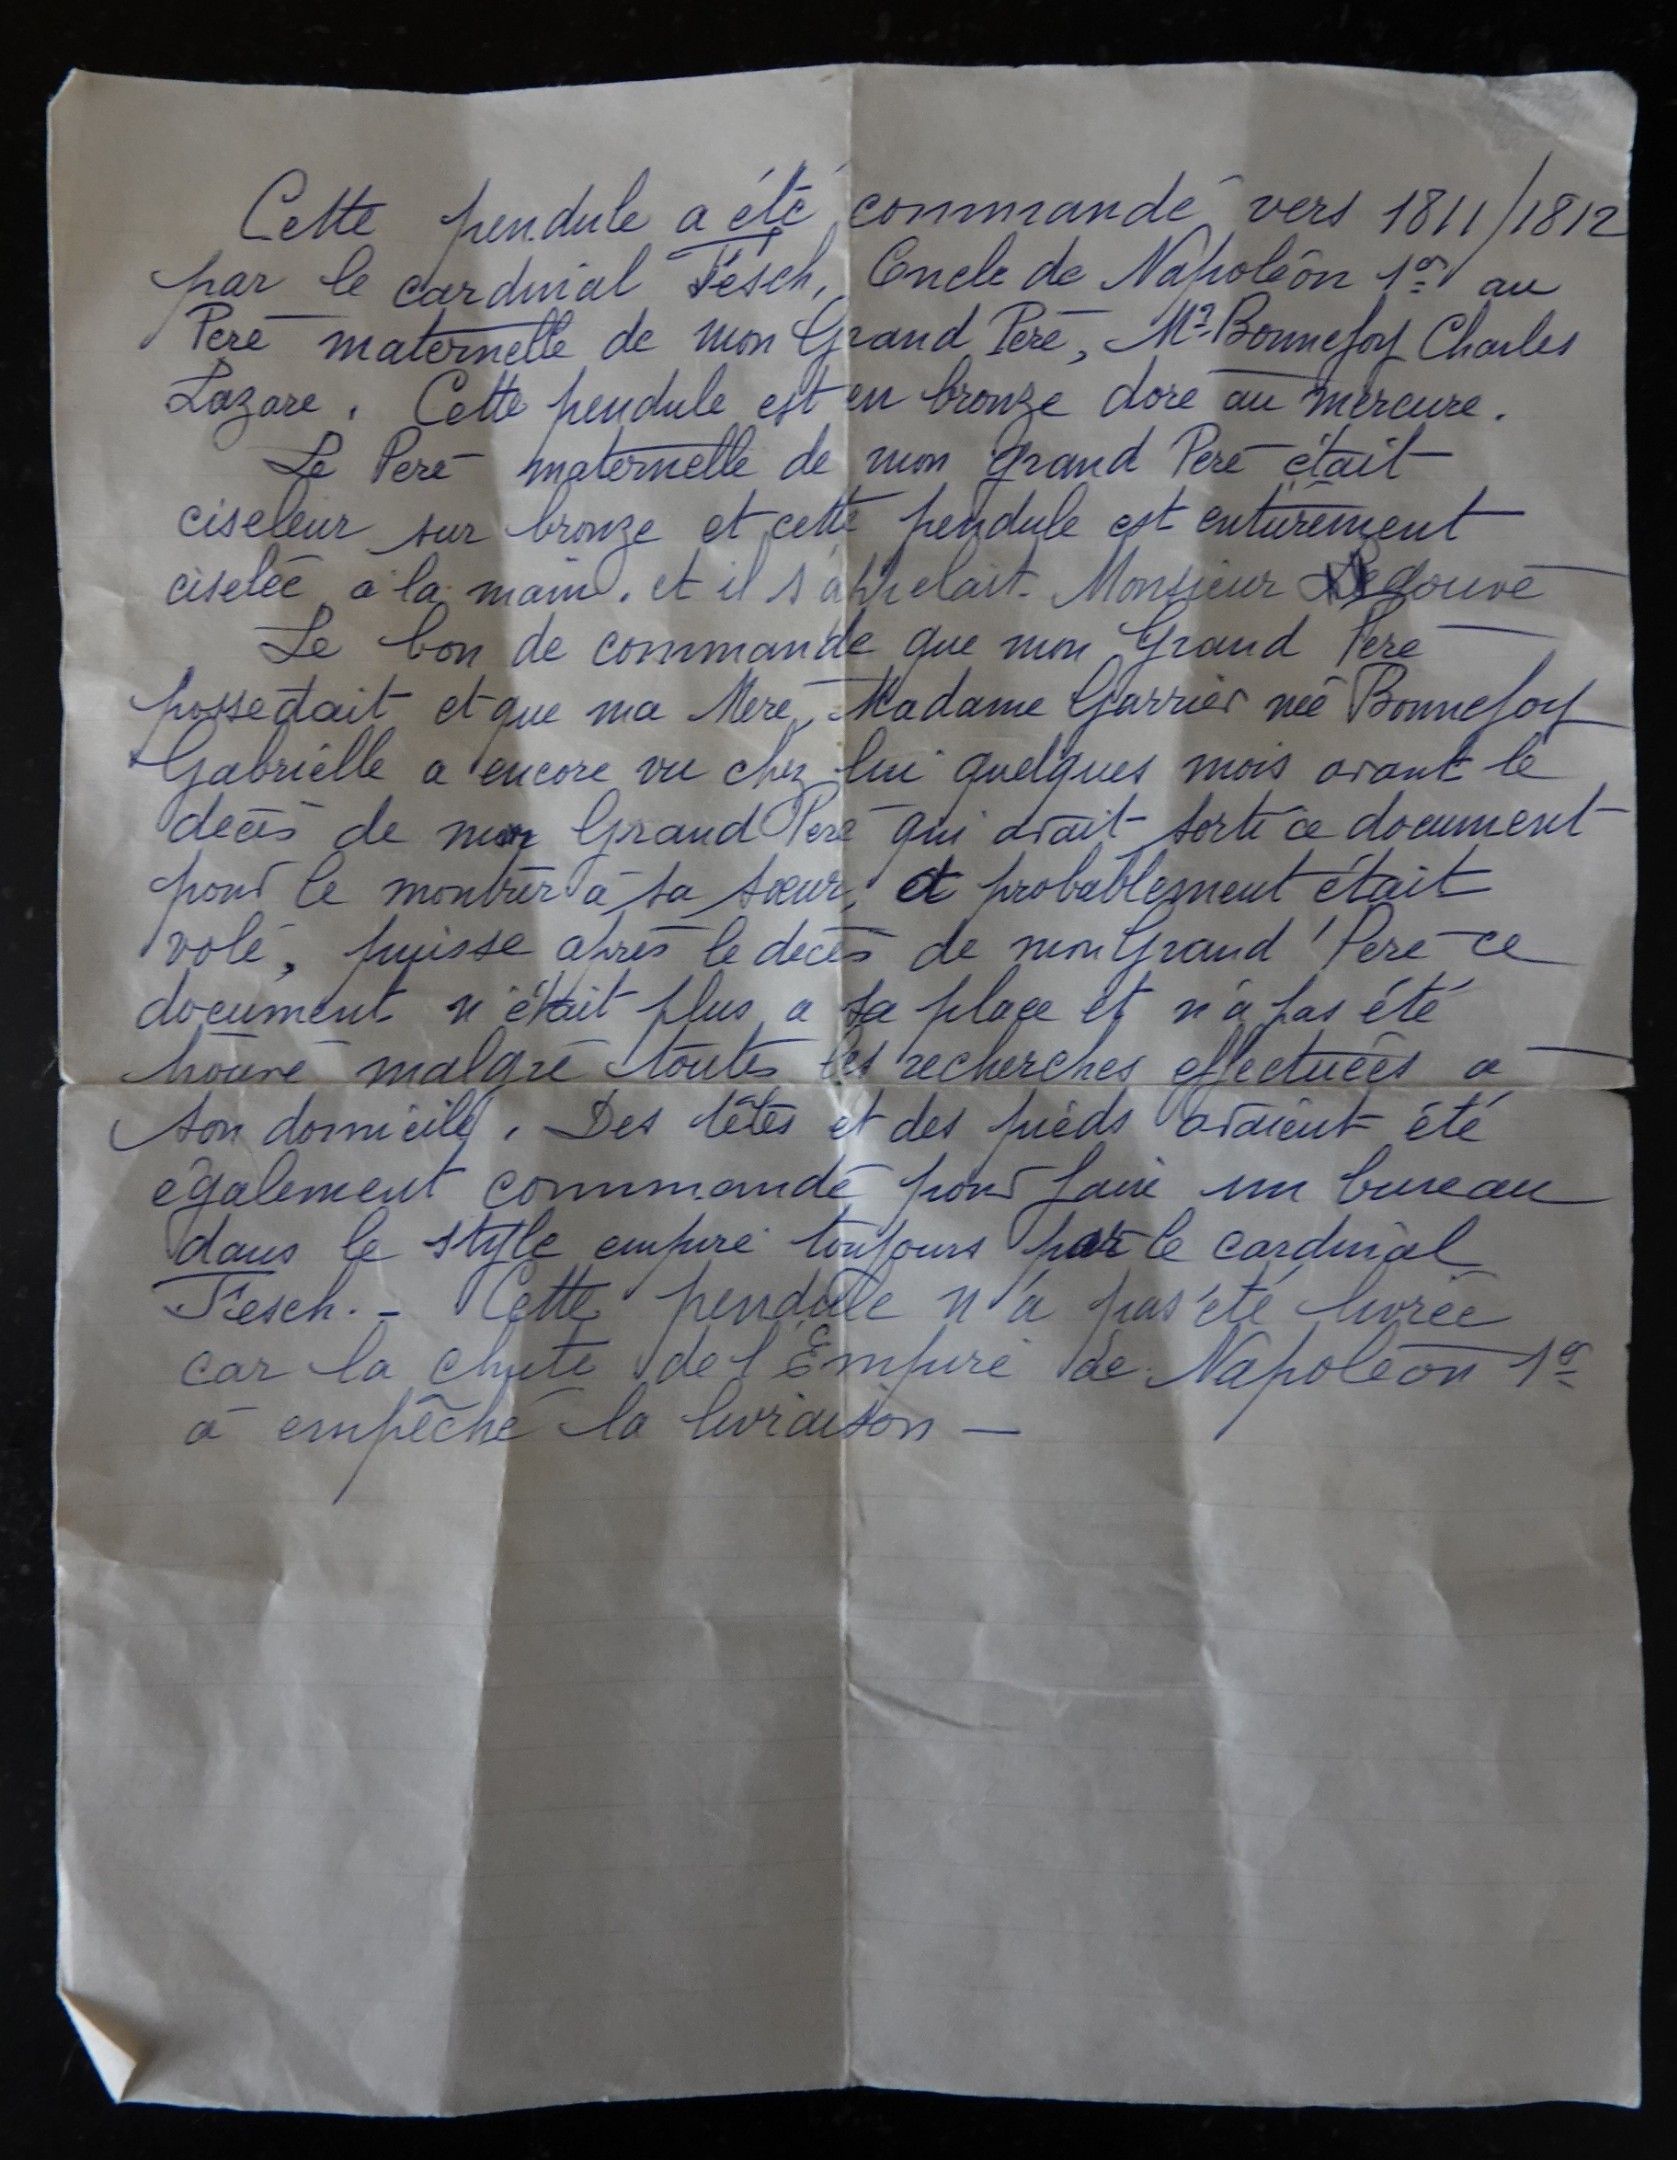 Cette pendule a été commandé vers 1811/1812
par le cardinal Fesch, Oncle de Napoléon 1er au
Père maternelle de mon Grand Père, Mr Bonnefoy Charles
Lazare. Cette pendule est en bronze doré au mercure.
Le Père maternelle de mon Grand Père était
ciseleur sur bronze et cette pendule est entièrement
ciselée à la main. et il s'appelait Monsieur
Le bon de commande que mon Grand Père
possedait et que ma Mère, Madame Garrier née Bonnefoy
Gabrielle a encore vu chez lui quelques mois avant le
decès de mon Grand Père qui avait sorti ce document
pour le montrer à sa sœur, et probablement était
volé, puisse après le decès de mon Grand Père ce
document n'était plus a sa place et n'a pas été
trouvé malgré toutes les recherches effectuées a
son domicile. Des têtes et des pieds avaient été
également commandé pour faire un bureau
dans le style empire toujours par le cardinal
Fesch. - Cette pendule n'a pas été livrée
car la chute de l'Empire de Napoléon 1er
à empêché la livraison -